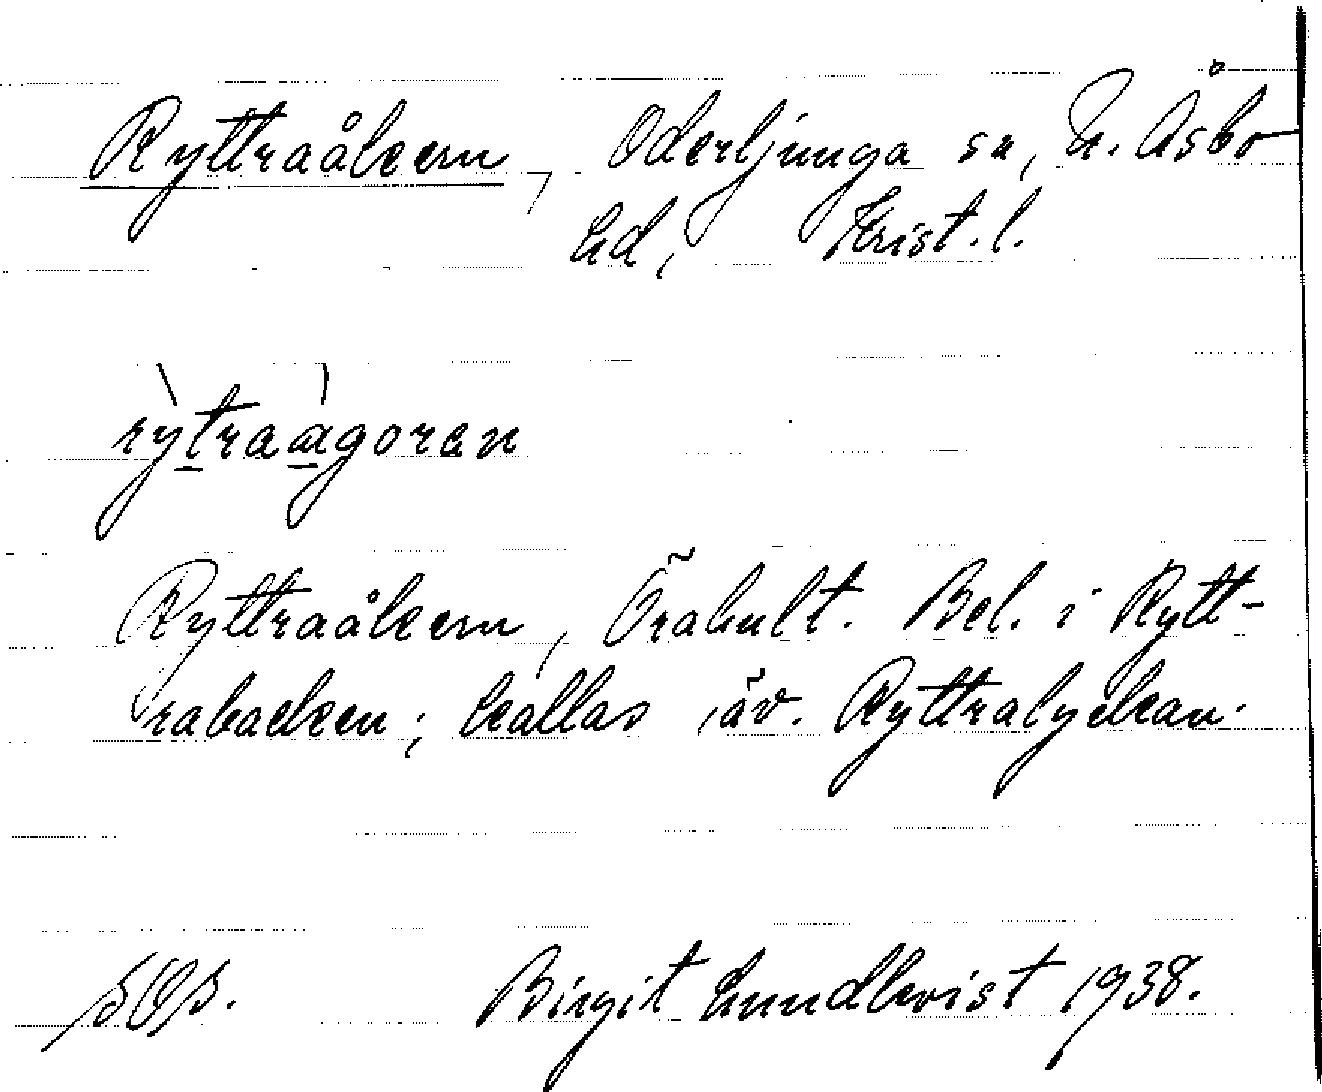 Ryttraåkern, Oderljunga sn, N. Åsbo
hd, Krist. l.
rỳtraàgoren
Ryttraåkern, Örahult. Bel. i Rytt-
rabacken; kallas äv. Ryttralyckan.
Birgit Lundkvist 1938.